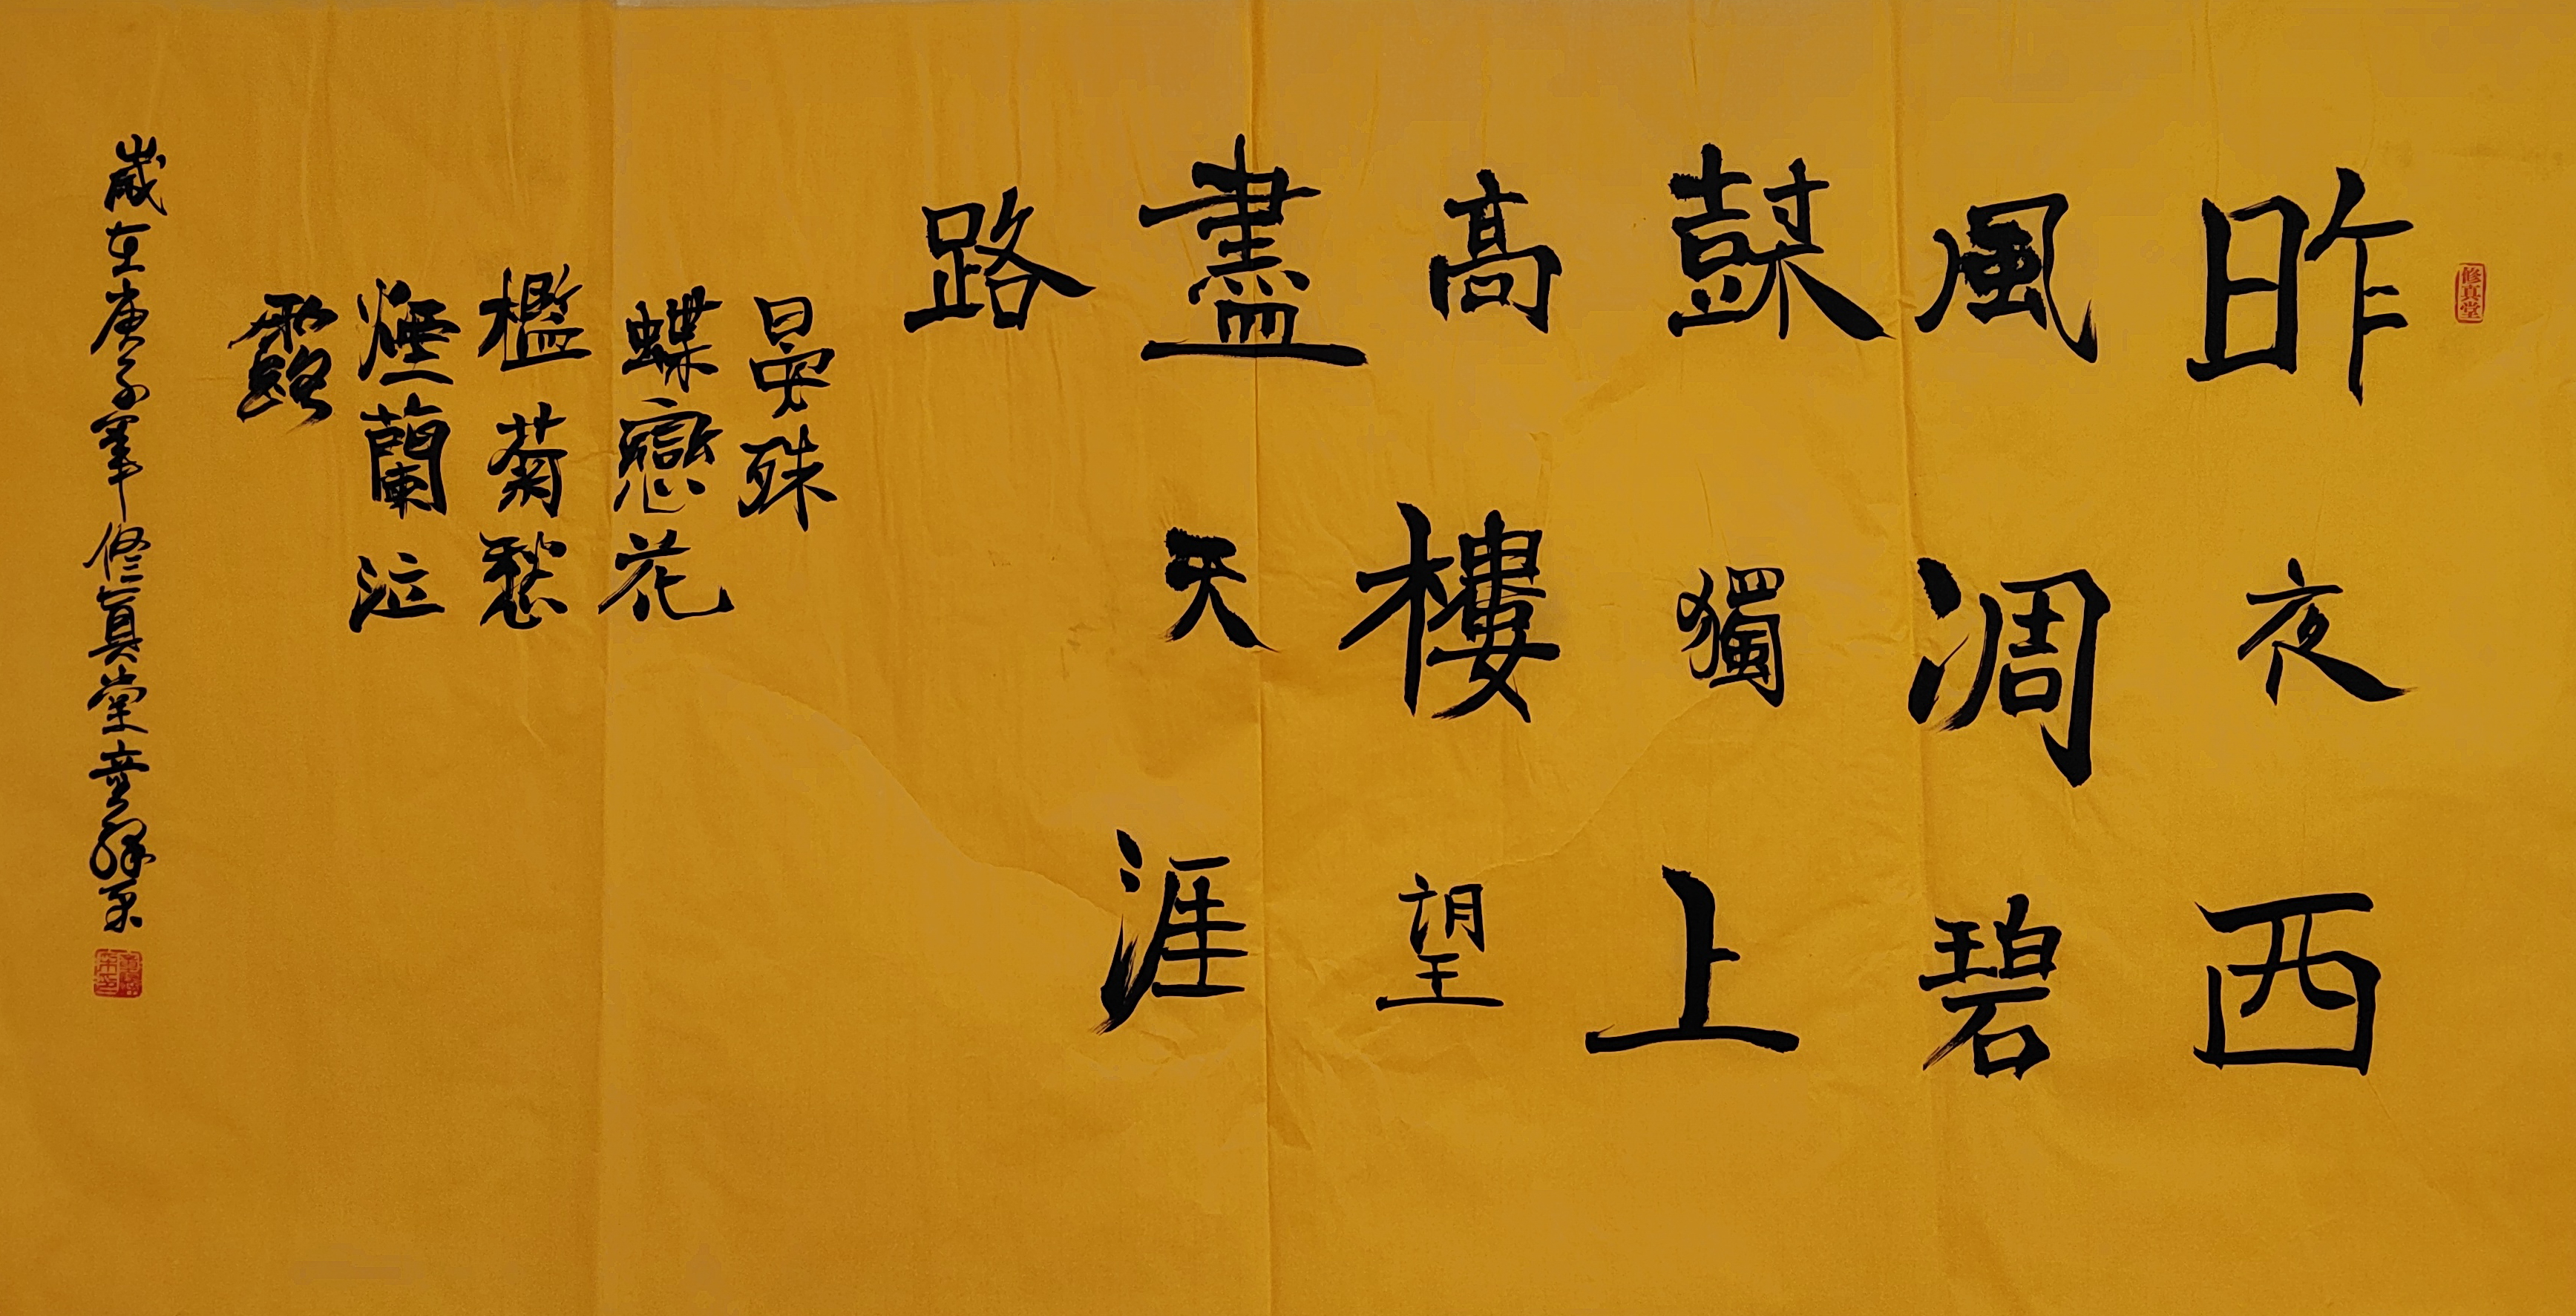 修真堂
昨夜西
風凋碧
鼔獨上
高樓望
盡天涯
路
晏殊
蝶戀花
檻菊愁
煙蘭泣
露
歲在庚子 修真堂童 采